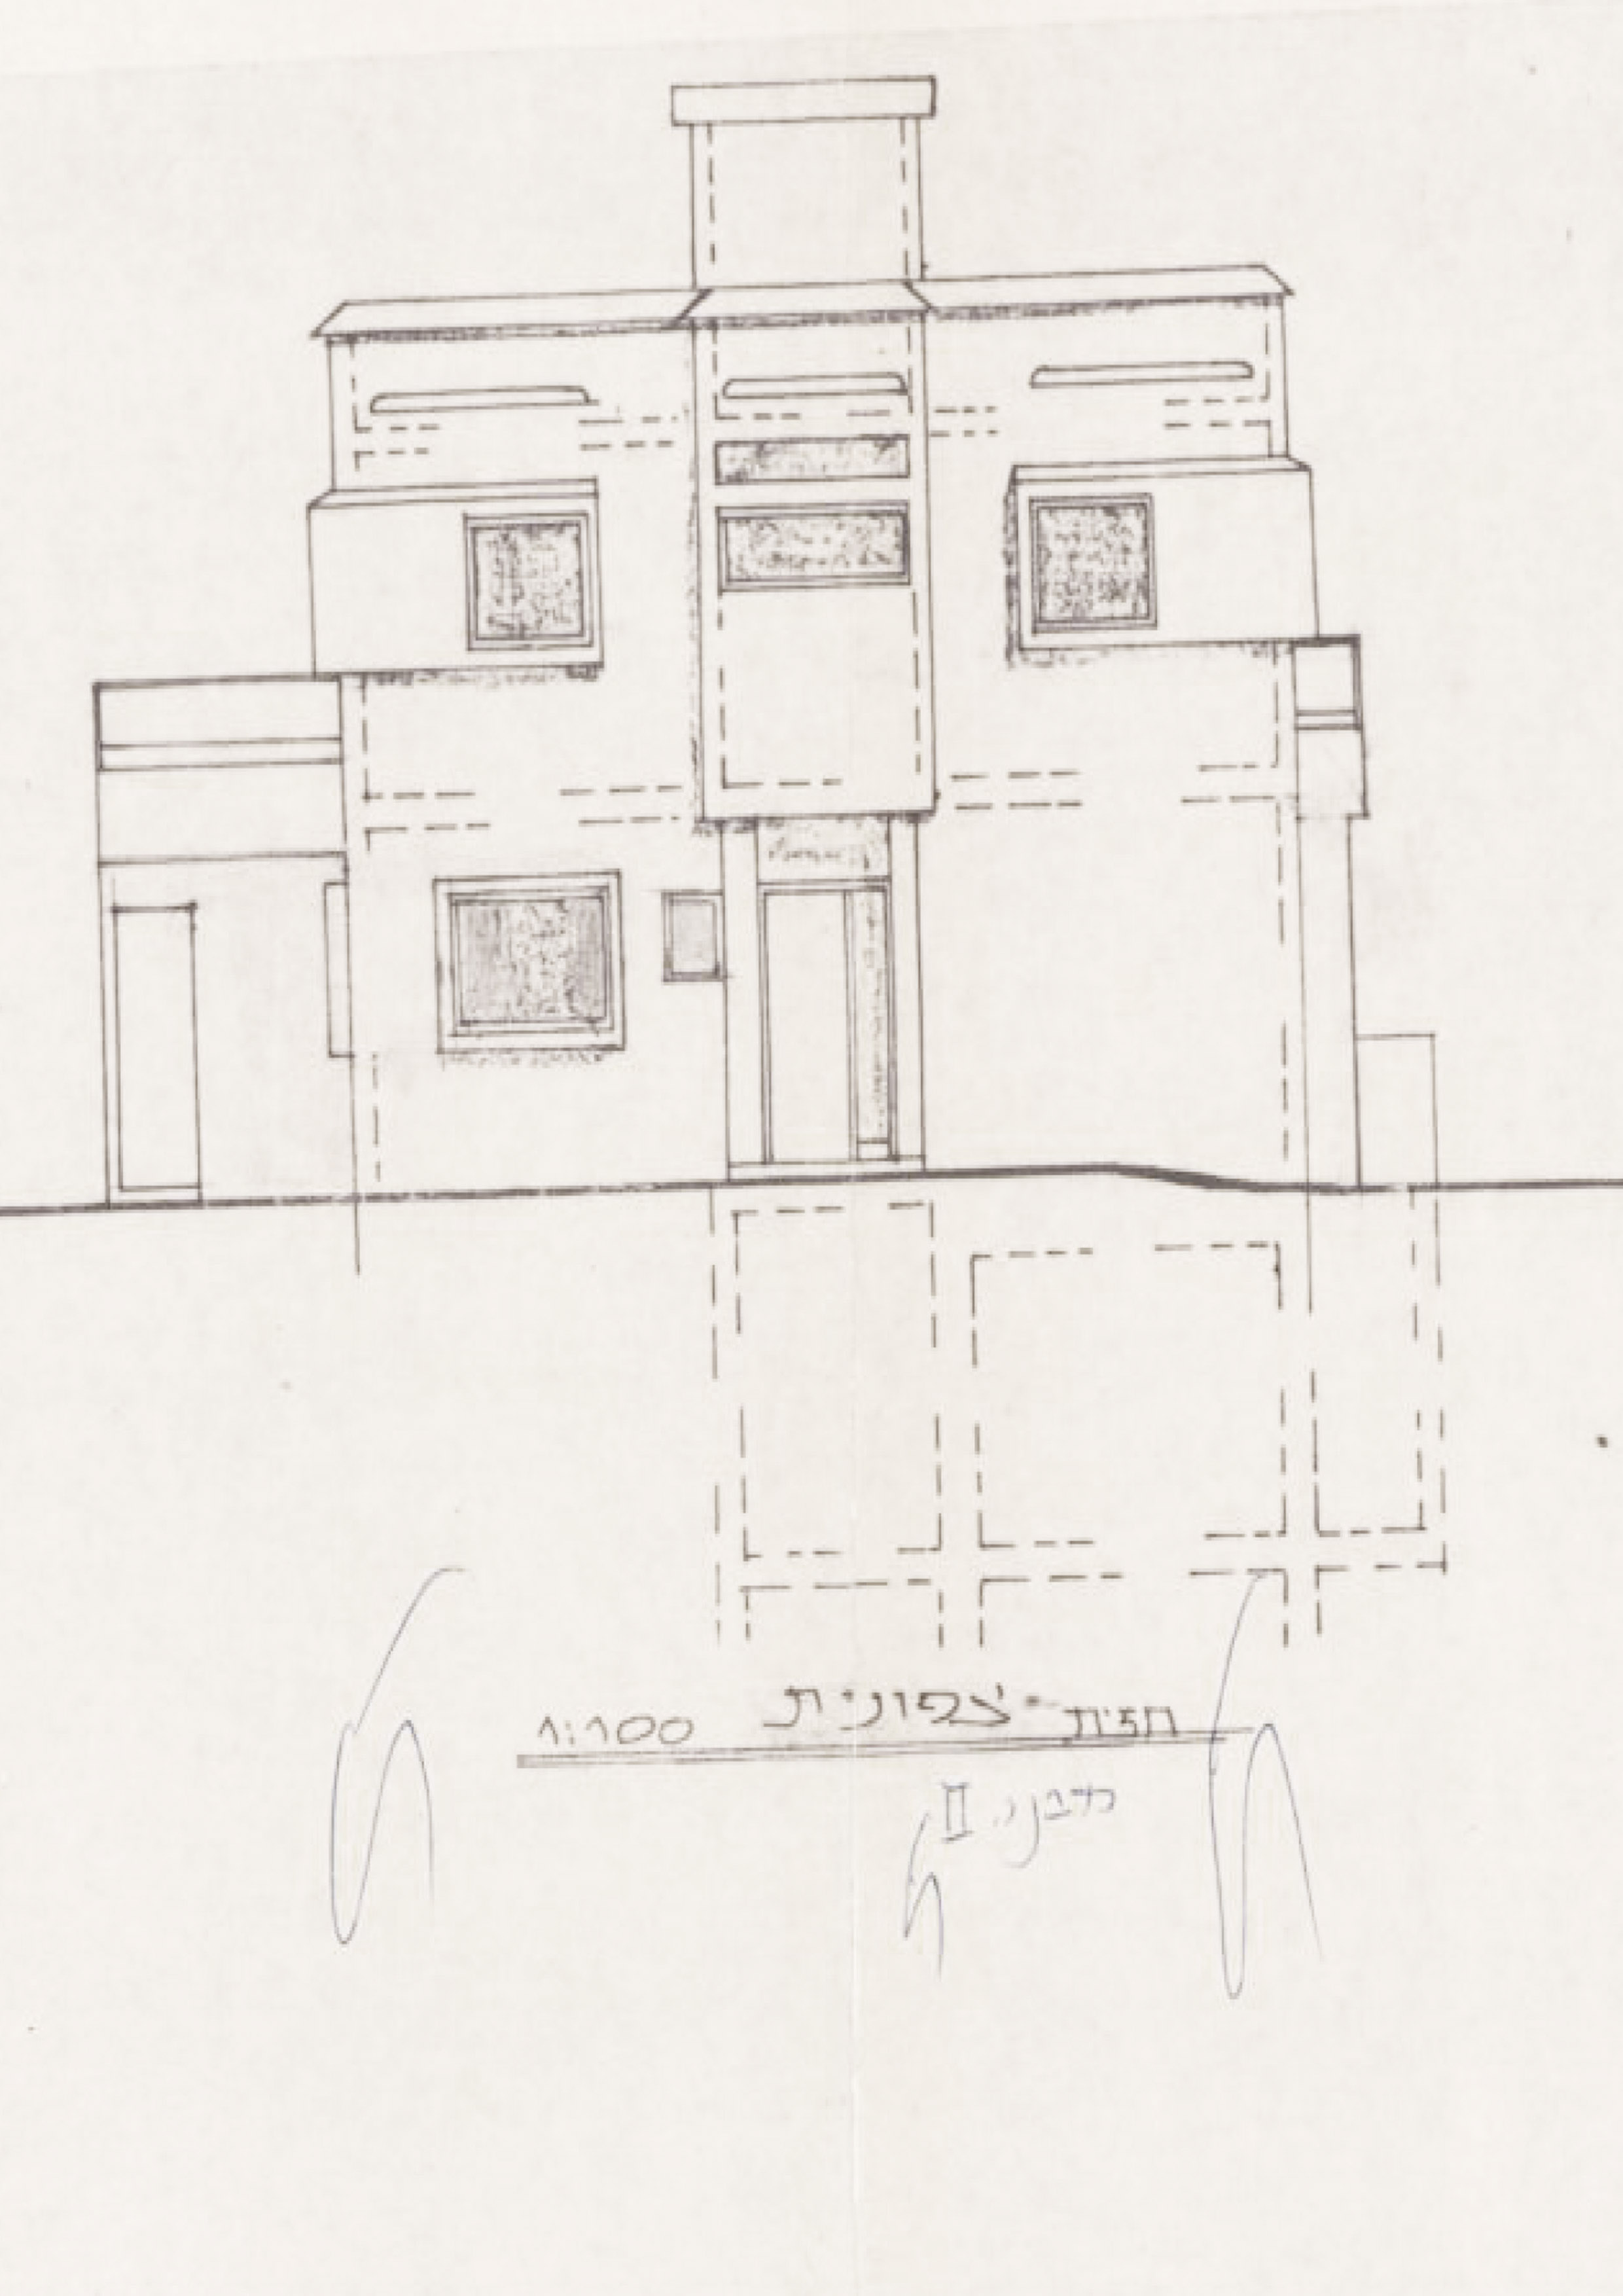 חזית צפונית 1:100
מבנה II